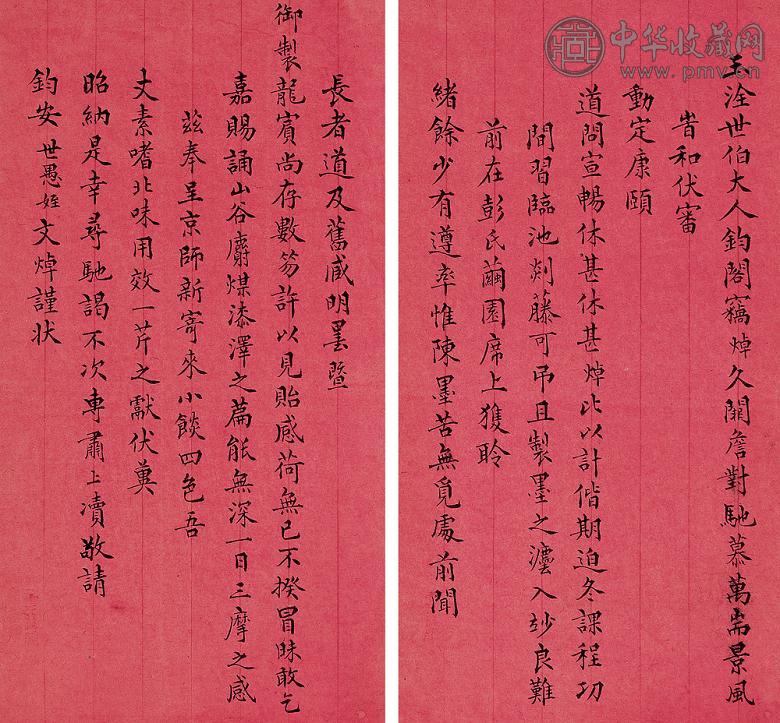 玉泩世伯大人鈞閣竊焯久闊詹對馳慕萬耑景風
畨和伏審
動定康頤
道問宣暢休甚休甚焯比以計偕期迫冬課程功
間習臨池剡藤可弔且製墨之灋入玅良難
前在彭氏繭園席上獲聆
緒餘少有遵率惟陳墨苦無覓處前聞
長者道及舊臧明墨暨
御製龍賓尚存數笏許以見貽感荷無已不揆冒昧敢乞
嘉賜誦山谷麝煤漆澤之篇能無深一日三摩之感
茲奉呈京師新寄來小餤四色吾
丈素嗜北味用效一芹之獻伏冀
昭納是幸尋馳謁不次專肅上瀆敬請
鈞安 世愚姪文焯謹狀
中华收藏网
www.pmv.cn